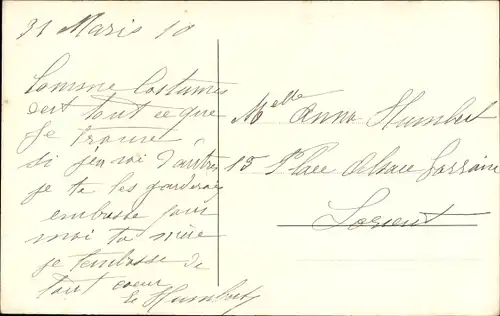 31 Mars 10
Comme Costumes
c'est tout ce que
je trouve
si j'en ai d'autres
je te les garderai
embrasse pour
moi ta mère
je t'embrasse de
tout coeur
Humbert
Melle Anna Humbert
15 Place Alsace Lorraine
Lorient